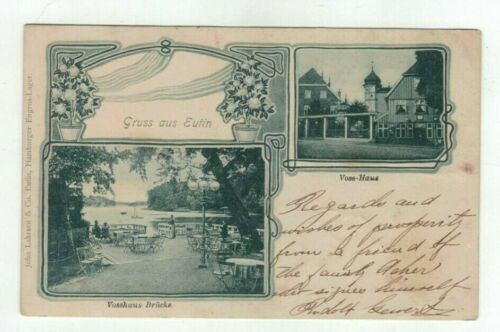 Gruss aus Eutin
Voss-Haus
Vosshaus Brücke.
John Lührsen & Co. Eutin, Hamburger Engros-Lager.
Regards and
wishes of prosperity
from a friend of
the
he signes himself
Rudolf